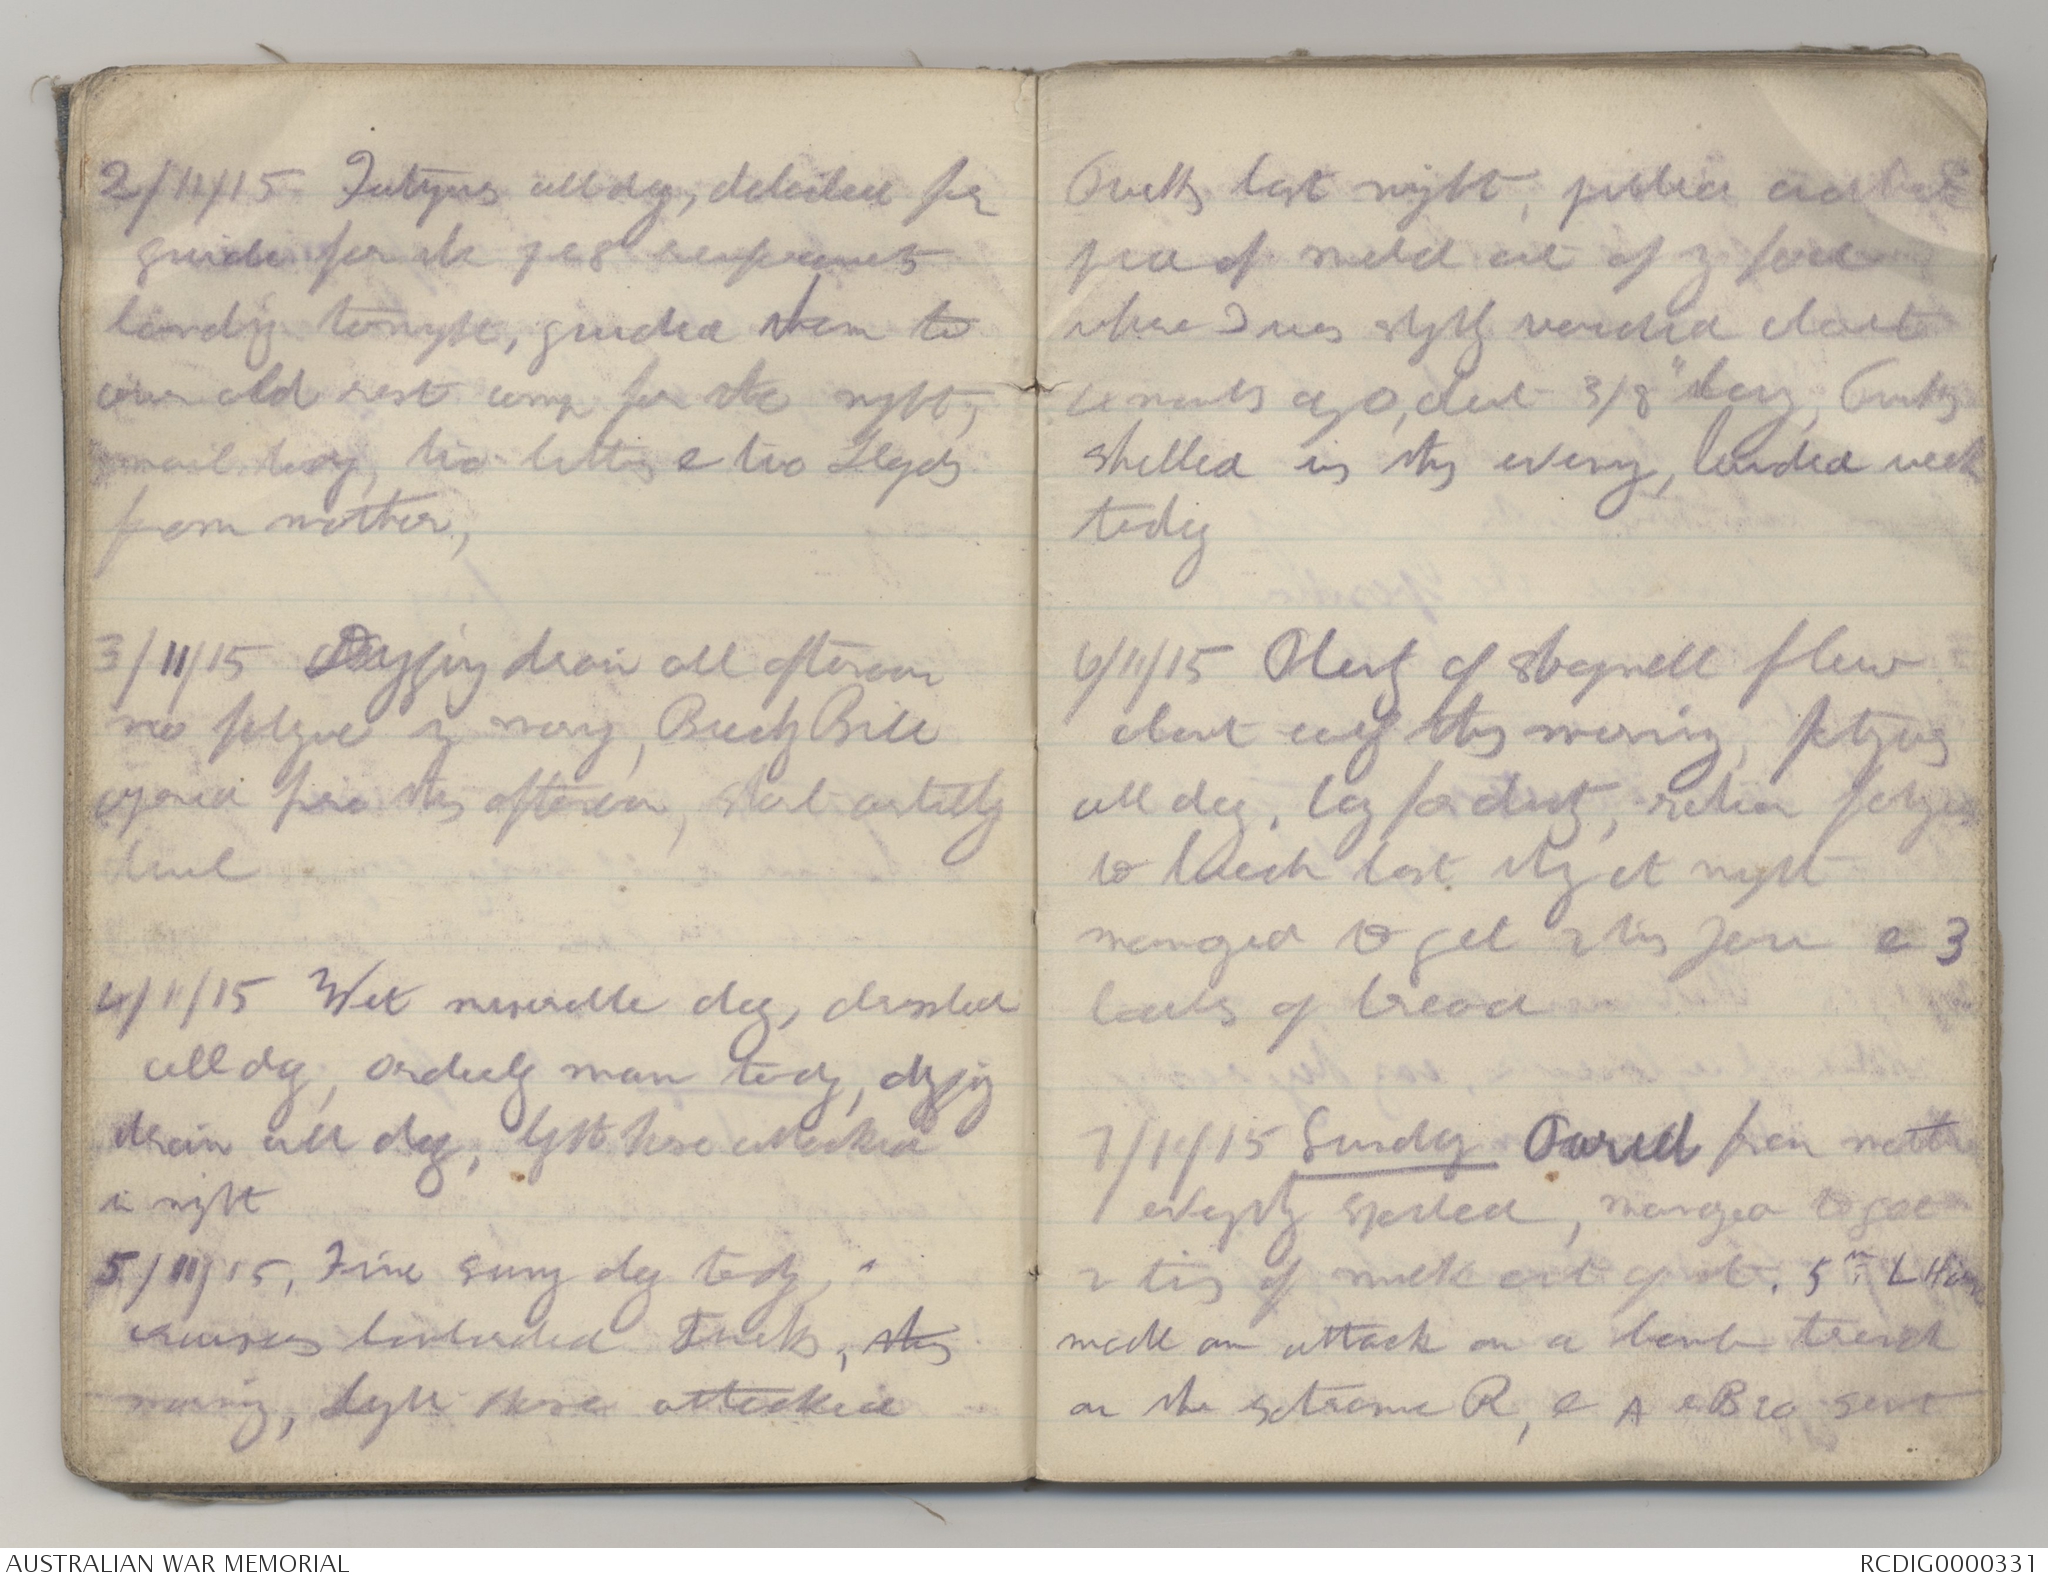 2/11/15 Fatigues all day, detailed for
guide for the 7 & 8 reinforcements
landing tonight, guided them to
our old rest camp for the night,
mail today, two letters & two
from mother,
3/11/15 Digging drain all afternoon
no fatigue in morng, Beachy Bill
opened fire this afternoon, artillery
duel
4/11/15 Wet miserable day, drizzled
all day, Orderly man today, digging
drain all day, light horse attacked
in night
5/11/15, Fine suny day today,
cruisers bombarded Turks, this
morning, Light Horse attacked
Turks last night, pulled another
piece of metal out of my forehead
where I was slightly wounded about
months ago, about 3/8" long, Turks
shelled us this evening, landed week
today
6/11/15 Plenty of shrapnell flew
about early this morning, fatigues
all day, ration fatigue
to beach last thing at night
managed to get 2 tins jam & 3
loaves of bread
7/11/15 Sunday Parcel from mother
everything spoiled, managed to get
2 tins of milk out of it. 5th L Horse
made an attack on a bomb trench
on the extreme R, & A & B Co sent
AUSTRALIAN WAR MEMORIAL
RCDIG0000331